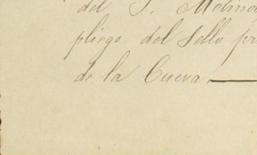 del S. Molino
pliego del Sello pr
de la Cueva